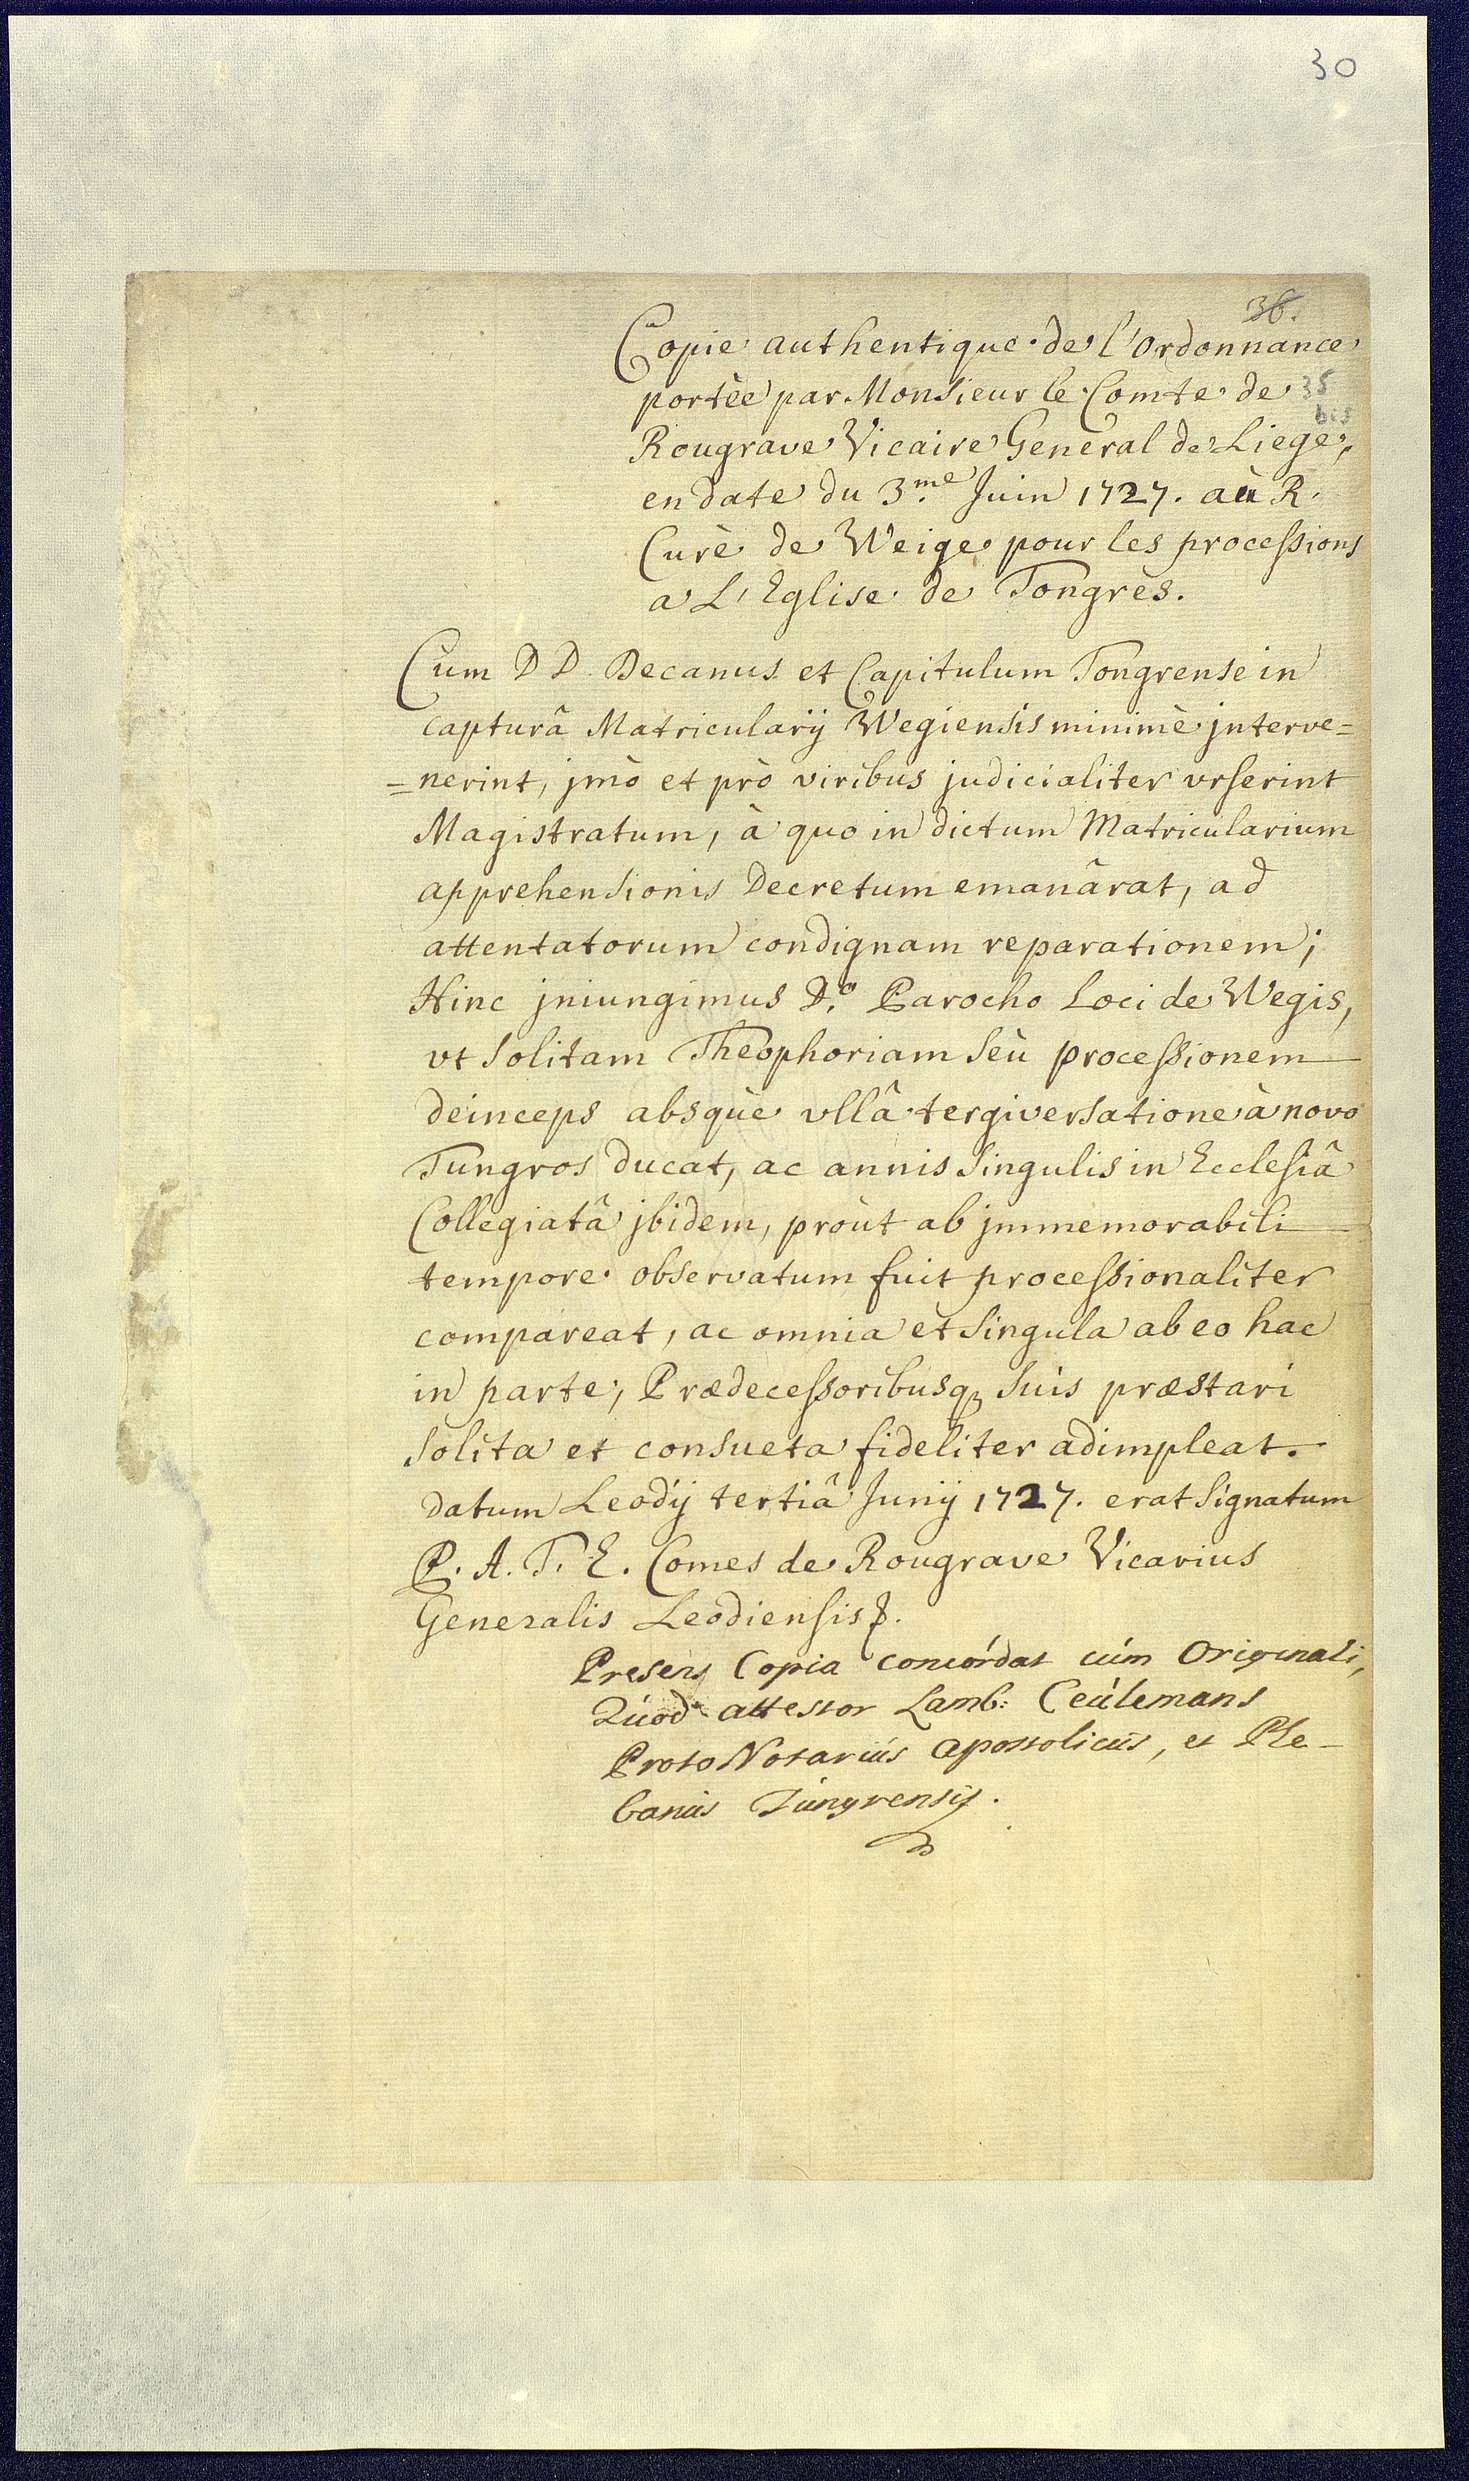 30
36.
Copie authentique de l'Ordonnance
portèe par Monsieur le Comte de
35
bis
Rougrave Vicaire General de Liege,
en date du 3.me Juin 1727. aù R.
Curè de Weige pour les processions
a L'Eglise de Tongrès.
Cum D D. Decanus et Capitulum Tongrense in
capturâ Matricularij Wegiensis minimè jnterve=
=nerint, jmò et prò viribus judicialiter vrserint
Magistratum, à quo in dictum Matricularium
apprehensionis Decretum emanârat, ad
attentatorum condignam reparationem;
Hinc jniungimus D.o Parocho Loci de Wegis,
vt solitam Theophoriam seù processionem
deinceps absquè vllâ tergiversatione à novo
Tungros ducat, ac annis singulis in Ecclesiâ
Collegiatâ jbidem, proùt ab jmmemorabili
tempore observatum fuit processionaliter
compareat, ac omnia et singula ab eo hac
in parte, Prædecessoribusq suis præstari
solita et consueta fideliter adimpleat.
datum Leodij tertiâ Junij 1727. erat signatum
P. A. T. E. Comes de Rougrave Vicarius
Generalis Leodiensis.
Presens Copia concórdat cúm Originali,
Qúod attestor Lamb: Ceúlemans
ProtoNotariús apostolicús, et Ple-
banús Túngrensis.